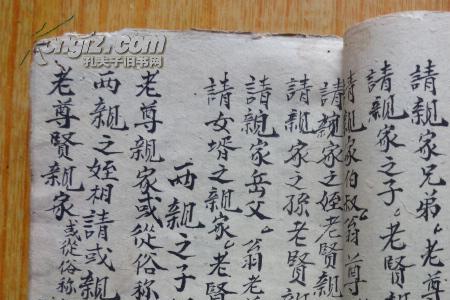 請親家兄弟〻老
請親家之子〻老賢
請親家伯叔〻翁尊
請親家之姪老賢親
請親家之孫老賢
請親家岳父〻翁老
請女壻之親家〻老賢
两親之子
老尊親家或從俗称
两親之姪相請或親
老尊賢親家或從俗称
kongfz.com
孔夫子旧书网